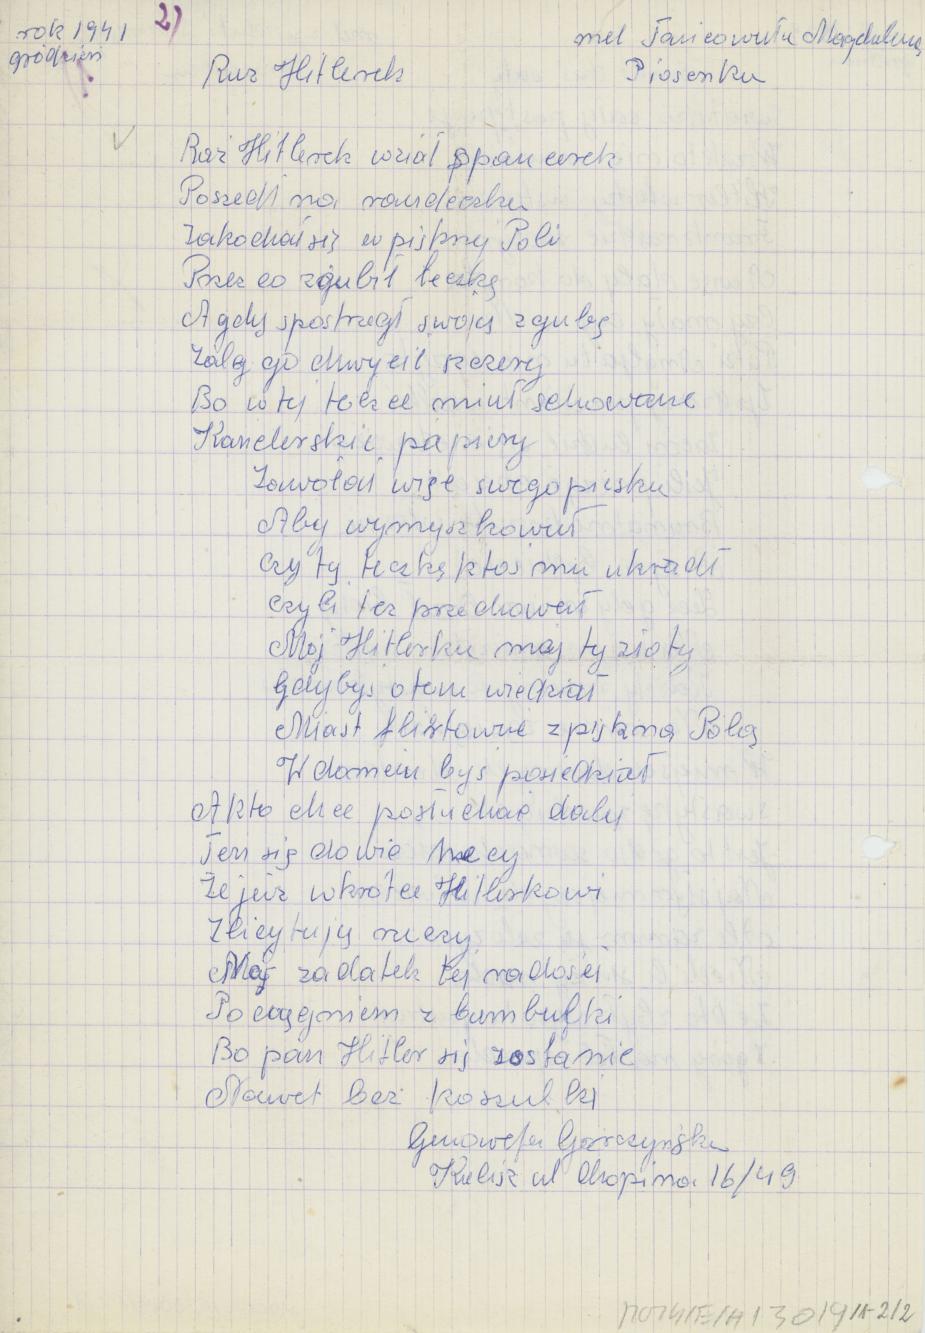 rok 1941 27 mel Tańcowała Magdalena
gródzień
Raz Hitlerek Piosenka
Raz Hitlerek wziął spacerek
Poszedł na randeczkę
Zakochał się w piękny Poli
Przez co zgubił teczkę
A gdy spostrzegł swoją zgubę
Żalą go chwycił szczery
Bo w tej teczce miał schowane
Kanclerskie papiery
Zawołał więc swego pieska
Aby wymyszkował
Czy tę teczkę ktoś mu ukradł
czyli też przechował
Mój Hitlerku mój ty złoty
Gdybyś o tem wiedział
Miast flirtować z piękną Polą
W domciu byś posiedział
A kto chce posłuchać dali
Ten się dowie hecy
Że już wkrótce Hitlerkowi
Zlicytują rzeczy
Na zadatek tej radości
Pociągniem z bambulki
Bo pan Hitler się zostanie
Nawet bez koszulki
Genowefa Gorczyńska
Kalisz ul Chopina 16/49